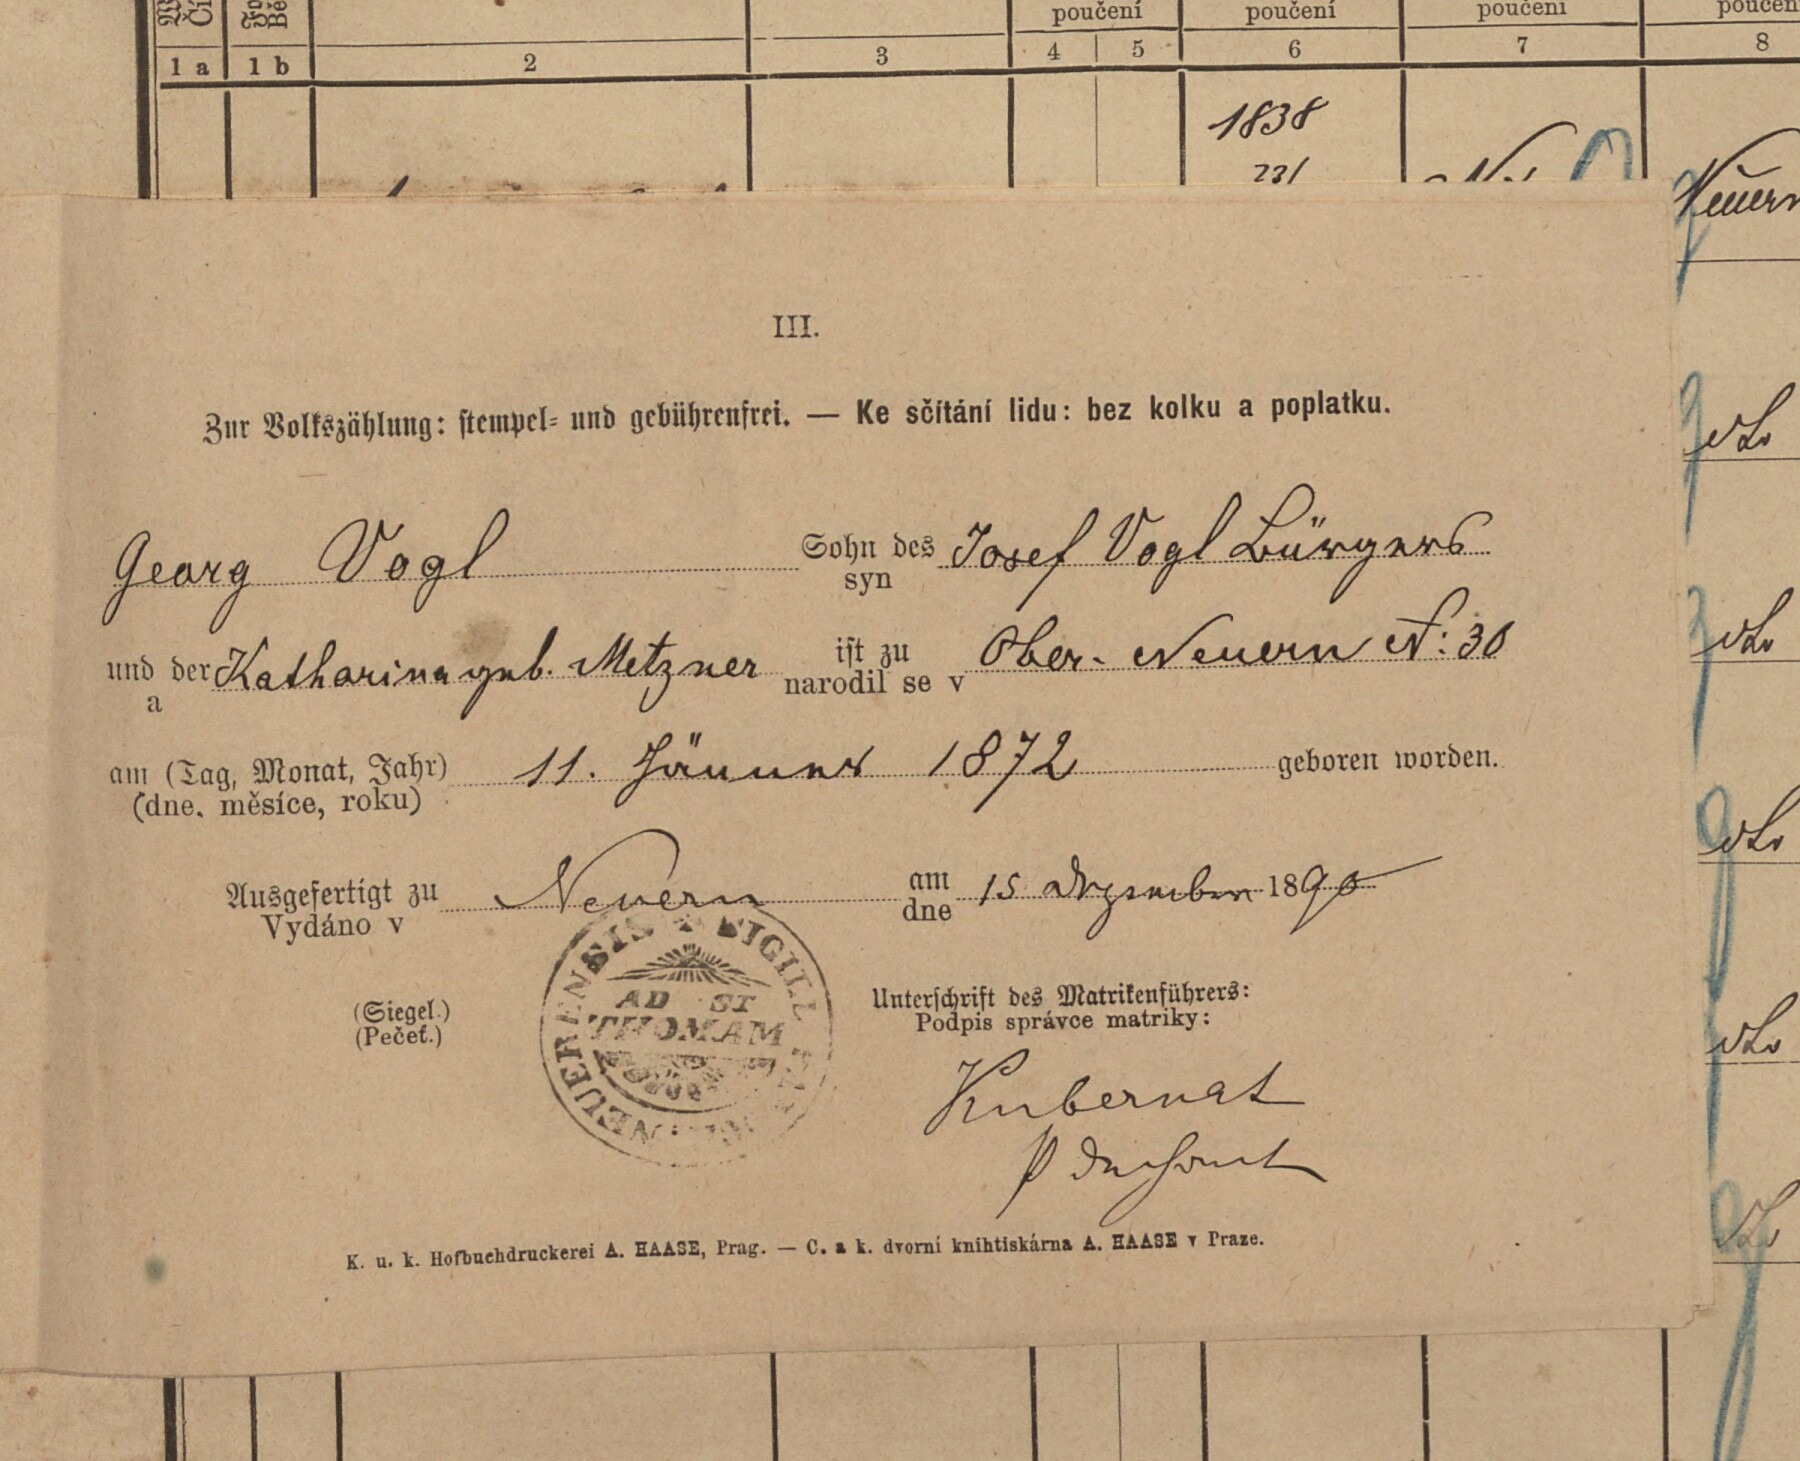 poučení poučení poučení
1 a 1 b 2 3 4 5 6 7 8
1838
Neuern
III.
Zur Volkszählung: stempel- und gebührenfrei. — Ke sčítání lidu: bez kolku a poplatku.
Georg Vogl Sohn des Josef Vogl Bürgers
syn
und der Katharina geb. Metzner ist zu Ober-Neuern N: 30
a narodil se v
am (Tag, Monat, Jahr) 11. Jänner 1872 geboren worden.
(dne, měsíce, roku)
Ausgefertigt zu Neuern am 15 Dezember 1890
Vydáno v dne
SIGILL NEUERNENSIS
AD ST
THOMAM
(Siegel.) Unterschrift des Matrikenführers:
(Pečeť.) Podpis správce matriky:
Kubernat
K. u. k. Hofbuchdruckerei A. HAASE, Prag. — C. a k. dvorní knihtiskárna A. HAASE v Praze.